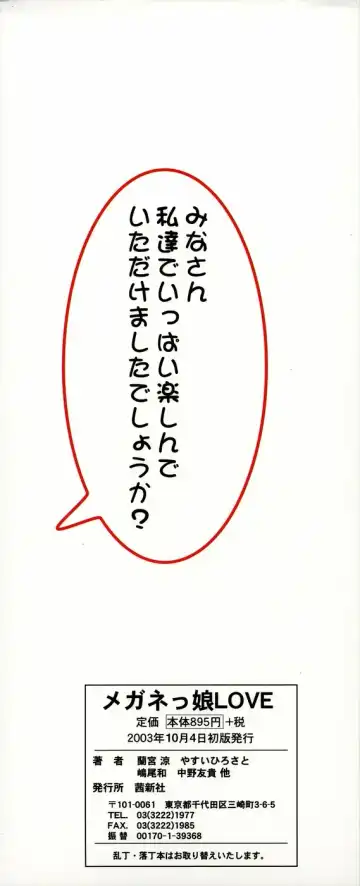 みなさん
私達でいっぱい楽しんで
いただけましたでしょうか?
メガネっ娘LOVE
定価 本体895円+税
2003年10月4日初版発行
著 者 蘭宮 涼 やすいひろさと
嶋尾和 中野友貴 他
発行所 茜新社
〒101-0061 東京都千代田区三崎町3-6-5
TEL. 03(3222)1977
FAX. 03(3222)1985
振 替 00170-1-39368
乱丁・落丁本はお取り替えいたします。